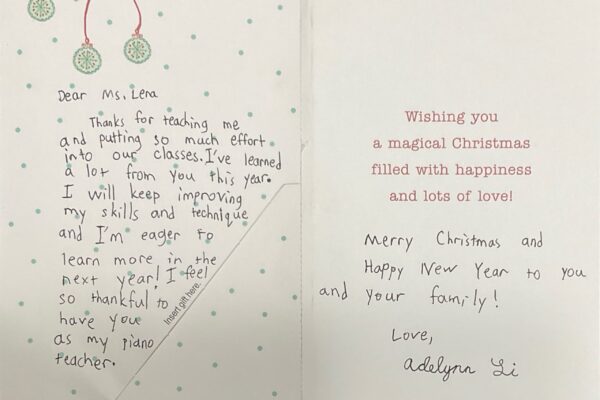 Dear Ms. Lena
Thanks for teaching me
and putting so much effort
into our classes. I've learned
a lot from you this year.
I will keep improving
my skills and technique
and I'm eager to
learn more in the
next year! I feel
so thankful to
have you
as my piano
teacher.
Insert gift here.
Wishing you
a magical Christmas
filled with happiness
and lots of love!
Merry Christmas and
Happy New Year to you
and your family!
Love,
Adelynn Li